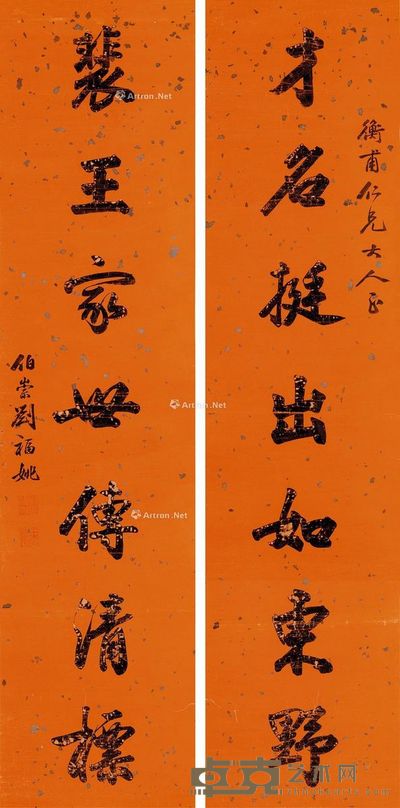 衡甫仁兄大人正
才名挺出如东野
裴王家世傳清標
伯崇劉福姚
Artron.Net
Artron.Net
Artron.Net
Artron.Net
卓克艺术网